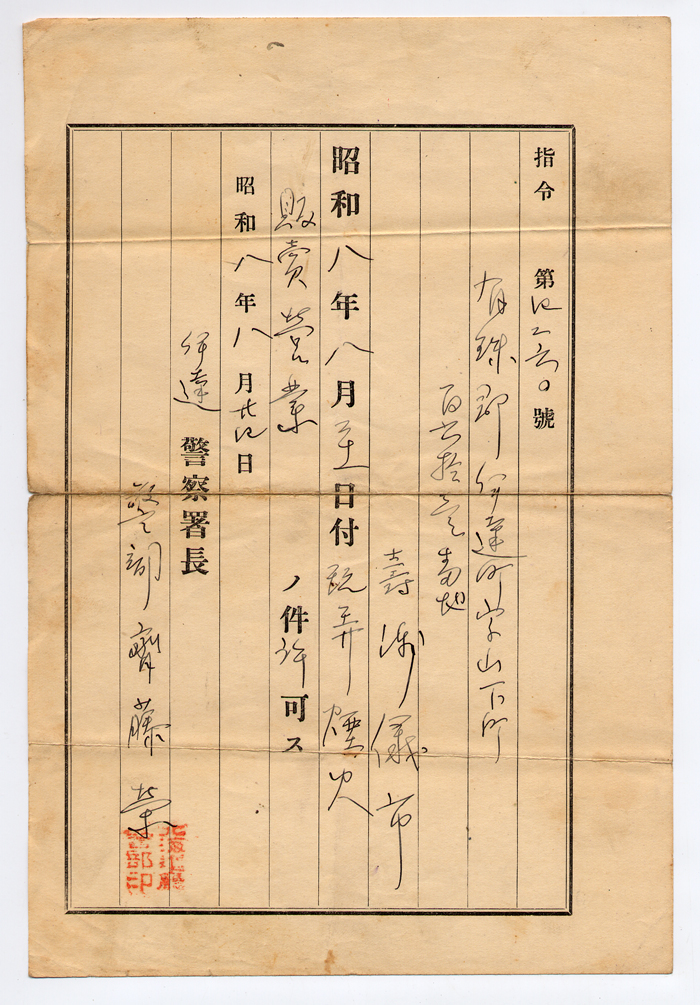 指令 第四二六〇號
有珠郡伊達町字山下町
百六拾壹番地
壽 儀市
昭和八年八月 日付玩弄煙火
販賣營業ノ件許可ス
昭和八年八月廿四日
伊達警察署長
警部齋藤榮
北海道廳
警部印